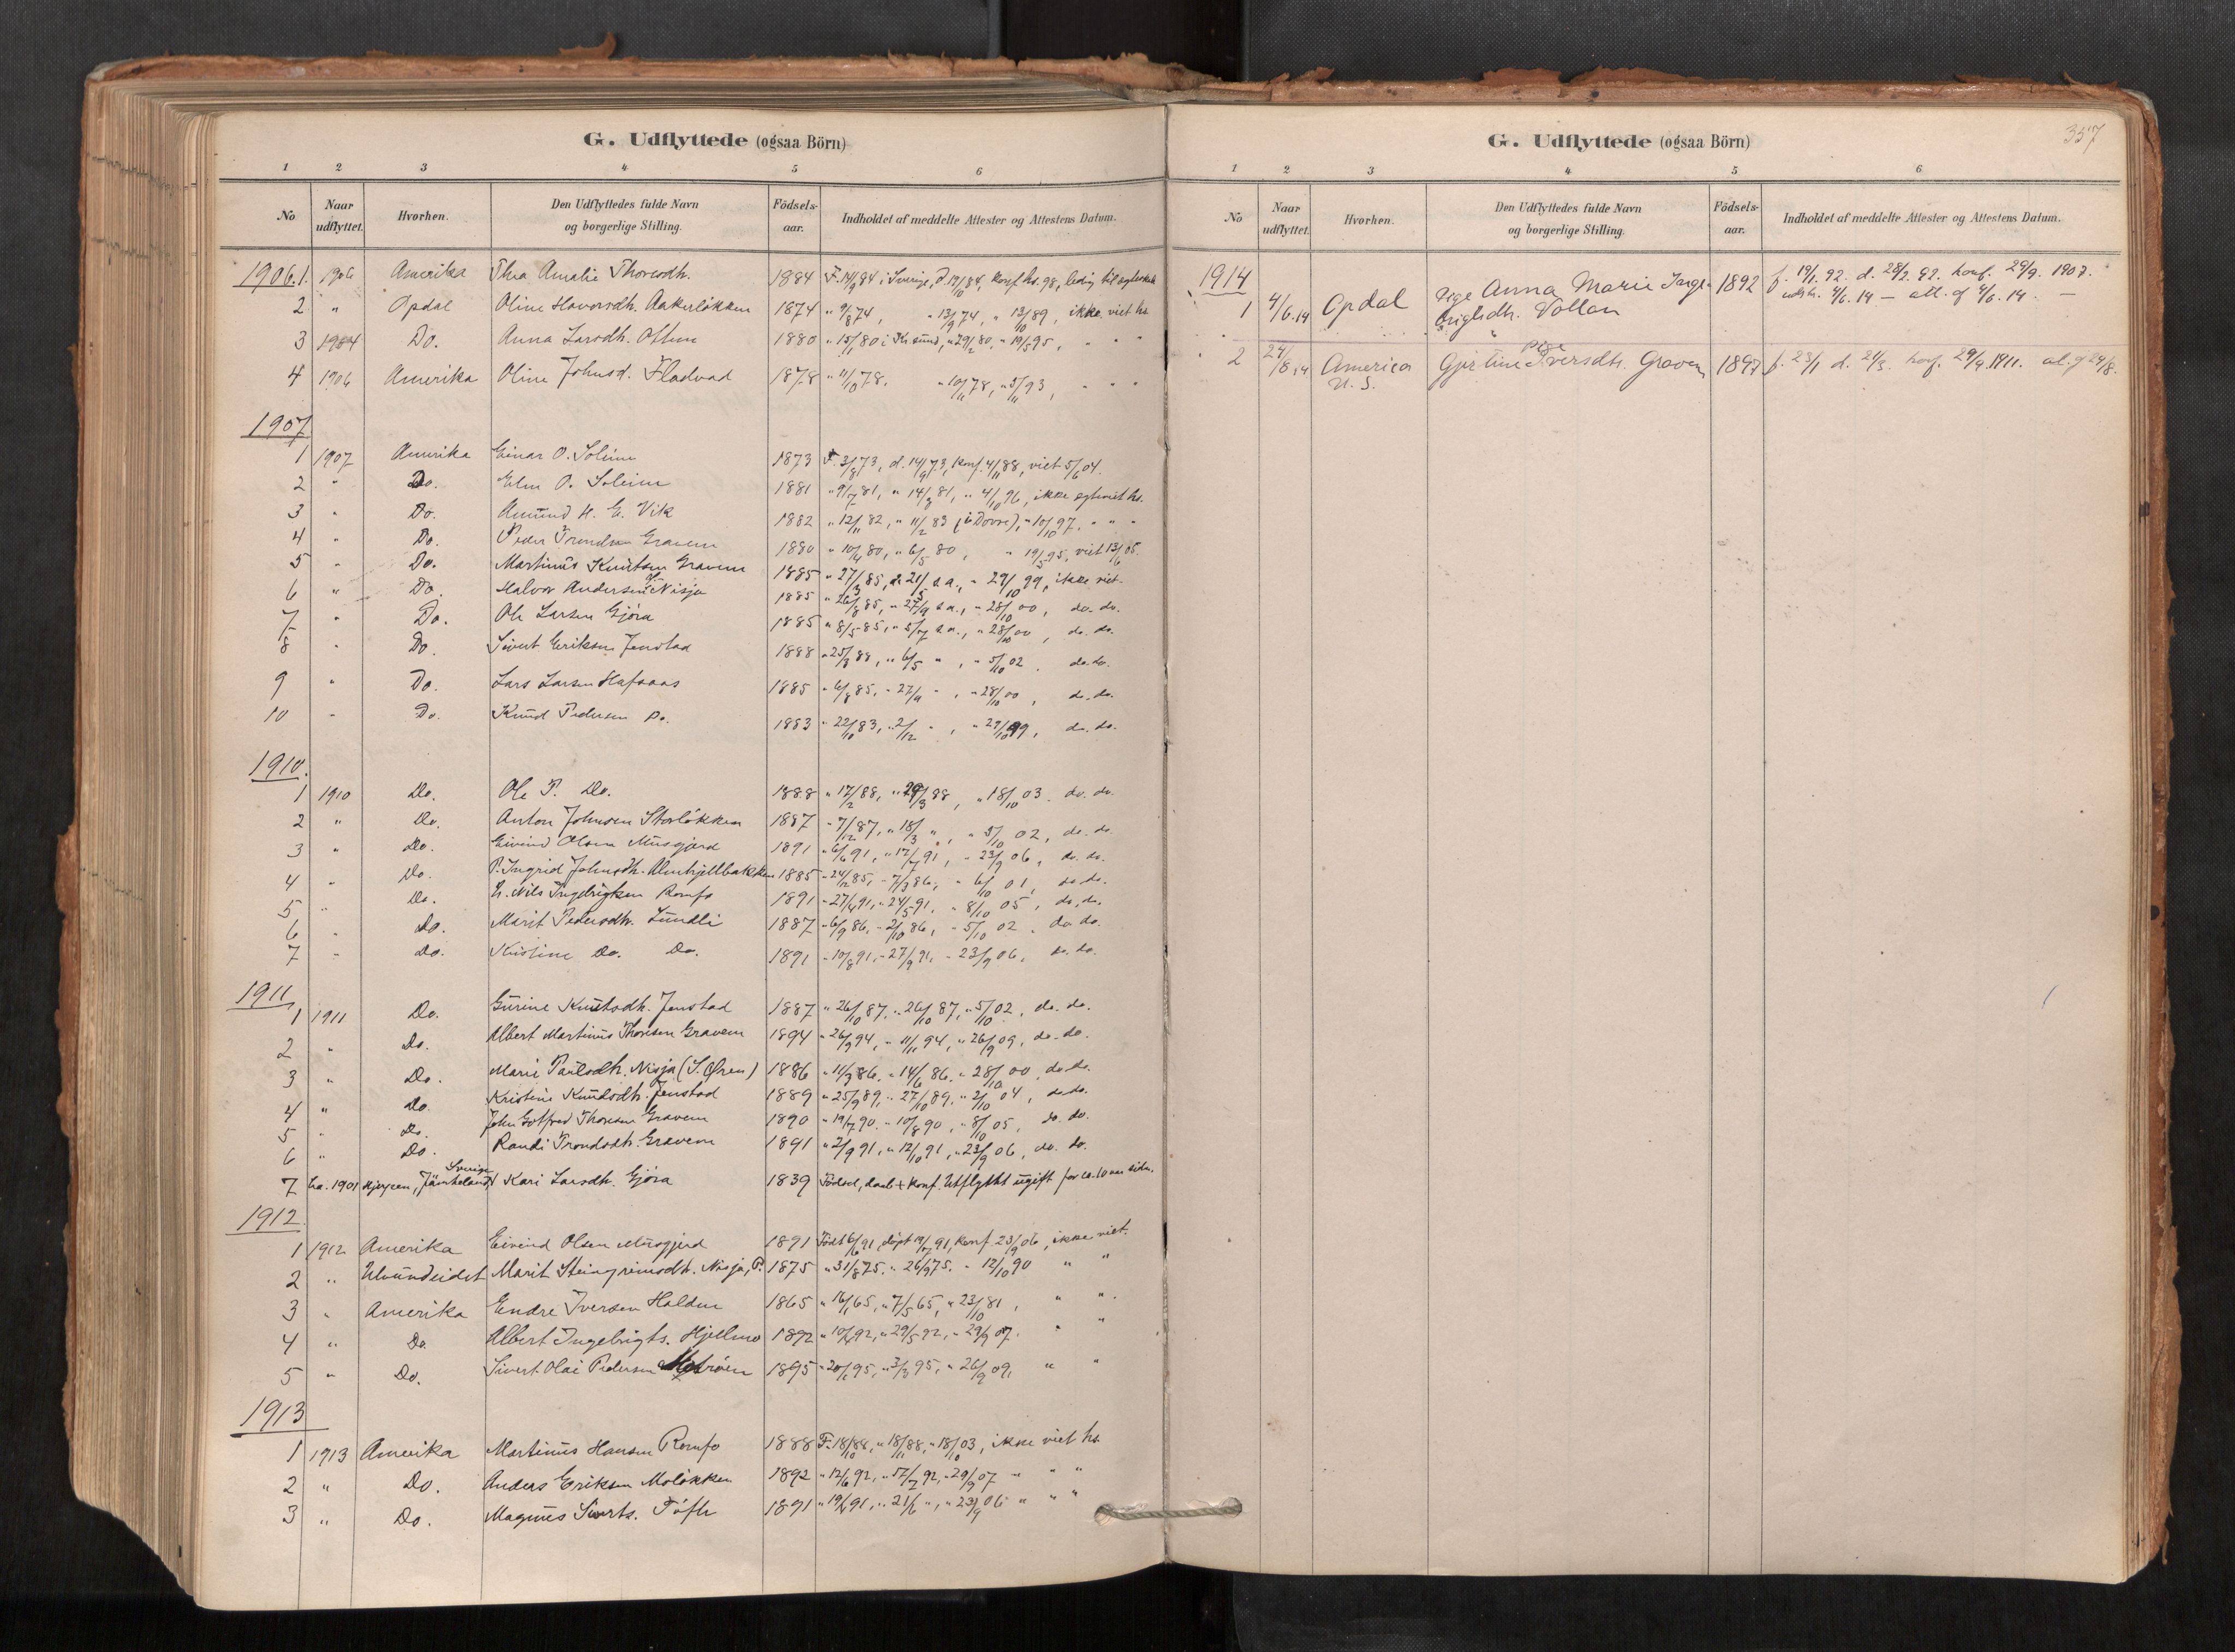 G. Udflyttede (ogsaa Börn)
1 2 3 4 5 6
No Naar udflyttet. Hvorhen. Den Udflyttedes fulde Navn og borgerlige Stilling. Födsels-aar. Indholdet af meddelte Attester og Attestens Datum.
1906. 1. 1906 Amerika Thea Amalie Thoresdh. 1884
2 " Opdal Oline Havorsdh. Aakerløkken 1874 ikke viet hs.
3 1904 Do. Anna Larsdh. 1880
4 1906 Amerika Oline Johnsd. Fladvad 1878
1907
1 1907 Amerika Einar O. Soleim 1873 F. 3/8 73, d. 14/9 73, konf. 4/11 88, viet 5/6 04.
2 " Do. O. Soleim 1881 ikke
3 " Do. Amund H. E. Vik 1882 " 12/11 82, " 11/2 83 (i Dovre), " 10/10 97, " "
4 " Do. Peder Trondsen Gravem 1880 " 10/4 80, " 6/5 80, " 19/5 95, viet 13/6 05.
5 " Do. Martinus Knutsen Gravem 1885 ikke viet.
6 " Do. Halvor Andersen Nisja 1885 do. do.
7 " Do. Ole Larsen Gjøra 1885 do. do.
8 " Do. Sivert Eriksen Jenstad 1888 " 5/10 02. do. do.
9 " Do. Lars Larsen Hafsaas 1885 " 28/10 00, do. do.
10 " Do. Knud Pedersen Do. 1883 " 22/10 83, " 2/12 " , " 29/10 99, do. do.
1910.
1 1910 Do. Ole P. Do. 1888 " 17/2 88, " 29/3 88, " 18/10 03. do. do.
2 " Do. Anton Johnsen Storløkken 1887 " 7/12 87, " 18/3 " , " 5/10 02, do. do.
3 " Do. Eivind Olsen Musgjerd 1891 " 6/6 91, " 23/9 06, do. do.
4 " Do. P. Ingrid Johnsdh. Almhjellbakken 1885 " 24/12 85, " 7/3 86, " 6/10 01, do. do.
5 " Do. Nils Ingebrigtsen Romfo 1891 " 27/4 91, " 24/5 91, " 8/10 05, do. do.
6 " Do. Marit Pedersdh. Lundli 1887 " 6/9 86, " 2/10 86, " 5/10 02, do. do.
7 " Do. Kristine Do. Do. 1891 " 10/8 91, " 27/9 91, " 23/9 06, do. do.
1911
1 1911 Do. Gurine Knutsdh. Jenstad 1887 " 26/10 87, " 5/10 02, do. do.
2 " Do. Albert Martinus Thoresen Gravem 1894 " 26/9 94, " 11/11 94, " 26/9 09, do. do.
3 " Do. Marie Paulsdh. Nisja (S. Øren) 1886 " 14/6 86, " 28/10 00, do. do.
4 " Do. Kristine Knudsdh. Jenstad 1889 " 25/9 89, " 27/10 89, " 2/10 04, do. do.
5 " Do. John Gotfred Thoresen Gravem 1890 " 19/7 90, " 10/8 90, " 8/10 05, do. do.
6 " Do. Randi Trondsdh. Gravem 1891 " 2/9 91, " 12/10 91, " 23/9 06, do. do.
7 ca. 1901 Jämteland, Sverige Kari Larsdh. Gjøra 1839 Fødsel, daab + konf. Utflyttet ugift for ca. 10 aar siden.
1912
1 1912 Amerika Eivind Olsen Musgjerd 1891 Født 6/6 91, døpt konf. 23/9 06, ikke viet.
2 " Ulvundeidet Marit Steingrimsdh. Nisja, P. 1875 " 31/8 75, " 26/9 75, " 12/10 90 " "
3 " Amerika Endre Iversen Halden 1865 " 16/1 65, " 7/5 65, " 23/10 81, " "
4 " Do. Albert Ingebrigts. Hjellmo 1892 " 10/4 92, " 29/5 92, " 29/9 07. " "
5 " Do. Sivert Olai Pedersen 1895 " 26/9 09, " "
1913
1 1913 Amerika Martinus Hansen Romfo 1888 F. 18/10 88, " 18/11 88, " 18/10 03, ikke viet hs.
2 " Do. Anders Eriksen Moløkken 1892 " 12/6 92, " 29/9 07 " " "
3 " Do. Magnus Siverts. Tøfte 1891 " 23/9 06 " " "
357
G. Udflyttede (ogsaa Börn)
1 2 3 4 5 6
No Naar udflyttet. Hvorhen. Den Udflyttedes fulde Navn og borgerlige Stilling. Födsels-aar. Indholdet af meddelte Attester og Attestens Datum.
1914
1 4/6. 14 Opdal Pige Anna Marie Inge- 1892 f. 19/1. 92. d. 28/2. 92. konf. 29/9. 1907.
brigtsdh. Vollan 4/6. 14 — att. af 4/6. 14. —
2 24/8 14 America Pige Iversdtr. Gravem 1897 f. 23/1 d. 21/3. konf. 29/9. 1911. 24/8.
U. S.